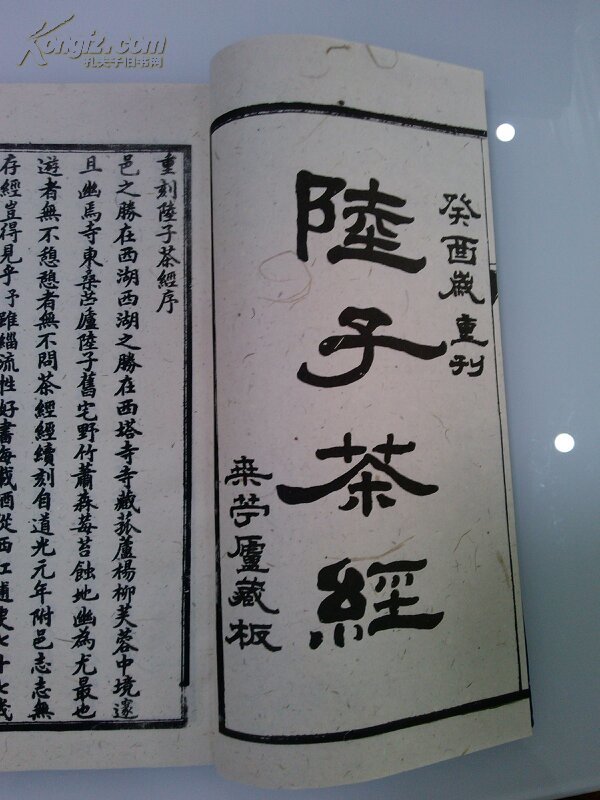 Kongfz.com
孔夫子旧书网
癸酉歲重刊
陸子茶經
桒苧廬藏板
重刻陸子茶經序
邑之勝在西湖西湖之勝在西塔寺寺藏菰蘆楊柳芙蓉中境邃
且幽焉寺東桑苎廬陸子舊宅野竹蕭森莓苔蝕地幽為尤最也
遊者無不憩憩者無不問茶經經續刻自道光元年附邑志志無
存經豈得見乎予雖緇流性好書每載酒從西江逋叟七十七歲